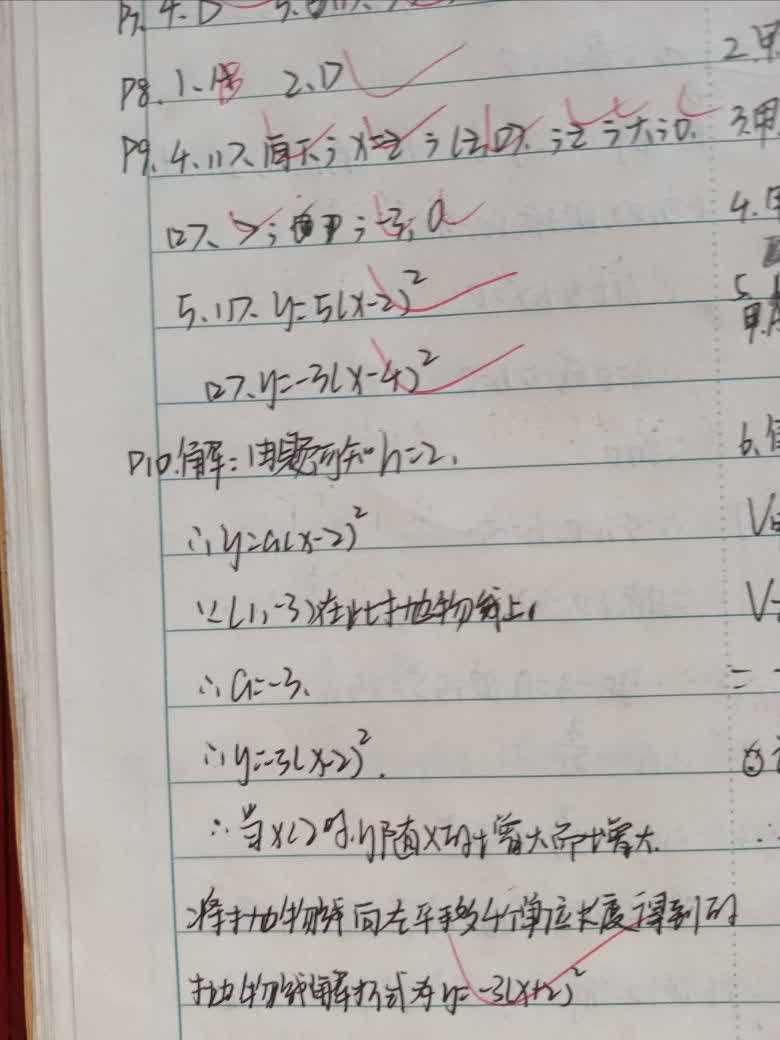 P8. 1、B 2、D
P9. 4、(1)、向下；x=2；(2,0)；2；大；0. 3.甲
(2)、>；-3；0 4.
5、(1)、y=5(x-2)² 5.
(2)、y=-3(x-4)²
P10.解：由题可知h=2. 6.
∴y=a(x-2)² V
∵(1,-3)在此抛物线上, V
∴a=-3. =
∴y=-3(x-2)².
∴当x<2时,y随x的增大而增大.
将抛物线向左平移4个单位长度得到的
抛物线解析式为y=-3(x+2)²